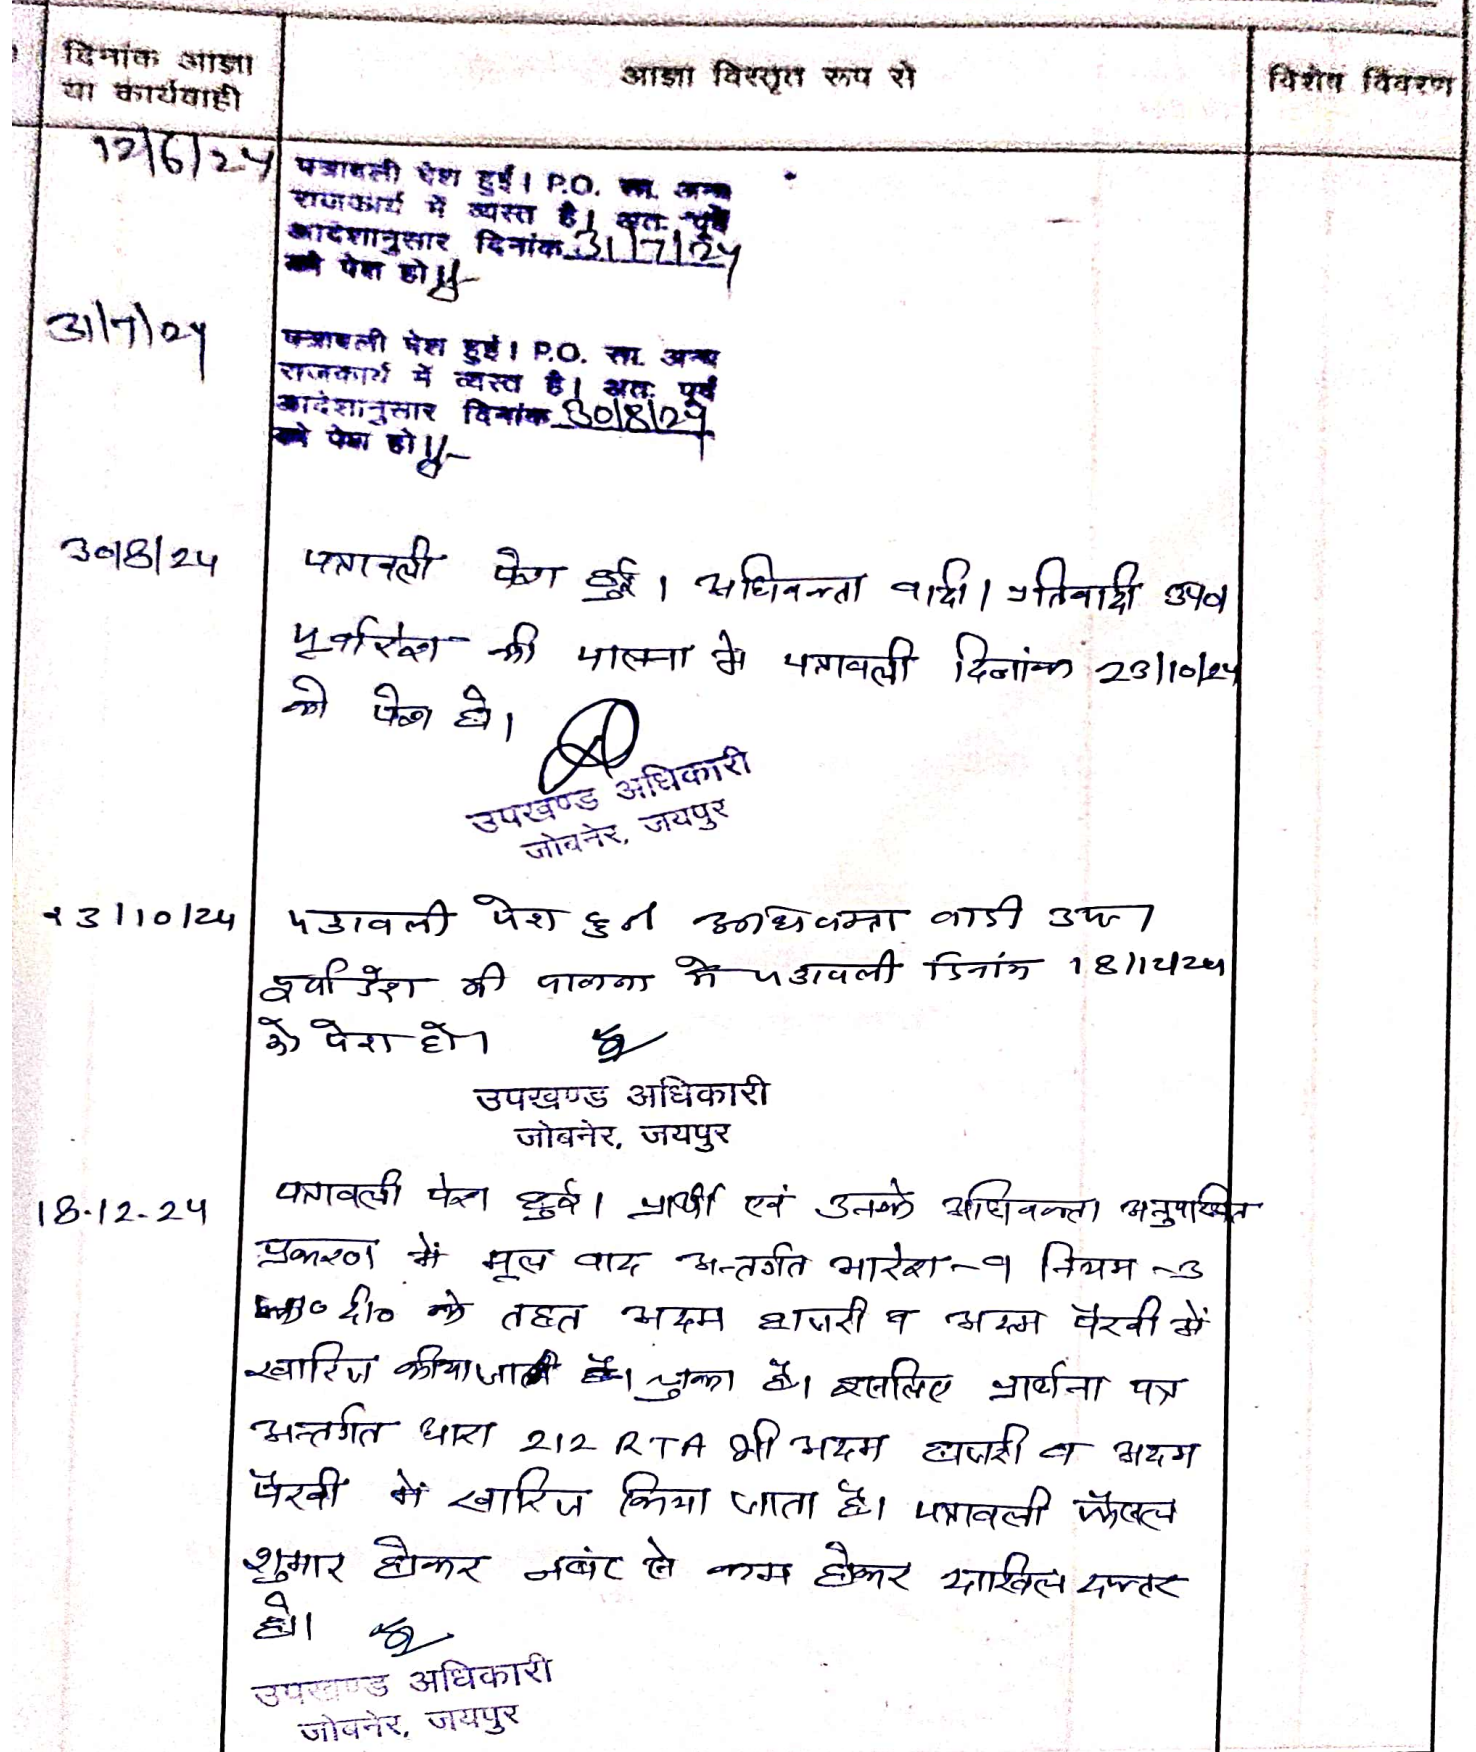 दिनांक आज्ञा
या कार्यवाही
आज्ञा विस्तृत रूप से
विशेष विवरण
12/6/24
पत्रावली पेश हुई। P.O. सा. अन्य
राजकार्य में व्यस्त है। अतः पूर्व
आदेशानुसार दिनांक 31/7/24
को पेश हो।
31/7/24
पत्रावली पेश हुई। P.O. सा. अन्य
राजकार्य में व्यस्त है। अतः पूर्व
आदेशानुसार दिनांक 30/8/24
को पेश हो।
30/8/24
पत्रावली पेश हुई। अधिवक्ता वादी। प्रतिवादी उप०
पूर्वादेश की पालना में पत्रावली दिनांक 23/10/24
को पेश हो।
उपखण्ड अधिकारी
जोबनेर, जयपुर
23/10/24
पत्रावली पेश हुई अधिवक्ता वादी उप।
पूर्वादेश की पालना में पत्रावली दिनांक 18/12/24
को पेश हो।
उपखण्ड अधिकारी
जोबनेर, जयपुर
18-12-24
पत्रावली पेश हुई। प्रार्थी एवं उनके अधिवक्ता अनुपस्थित
प्रकरण में मूल वाद अन्तर्गत आदेश-9 नियम-3
दी० के तहत अदम हाजरी व अदम पैरवी में
खारिज कीया जा चुका है। इसलिए प्रार्थना पत्र
अन्तर्गत धारा 212 RTA भी अदम हाजरी व अदम
पैरवी में खारिज किया जाता है। पत्रावली फैसल
शुमार होकर नबंर से कम होकर दाखिल दफ्तर
हो।
उपखण्ड अधिकारी
जोबनेर, जयपुर